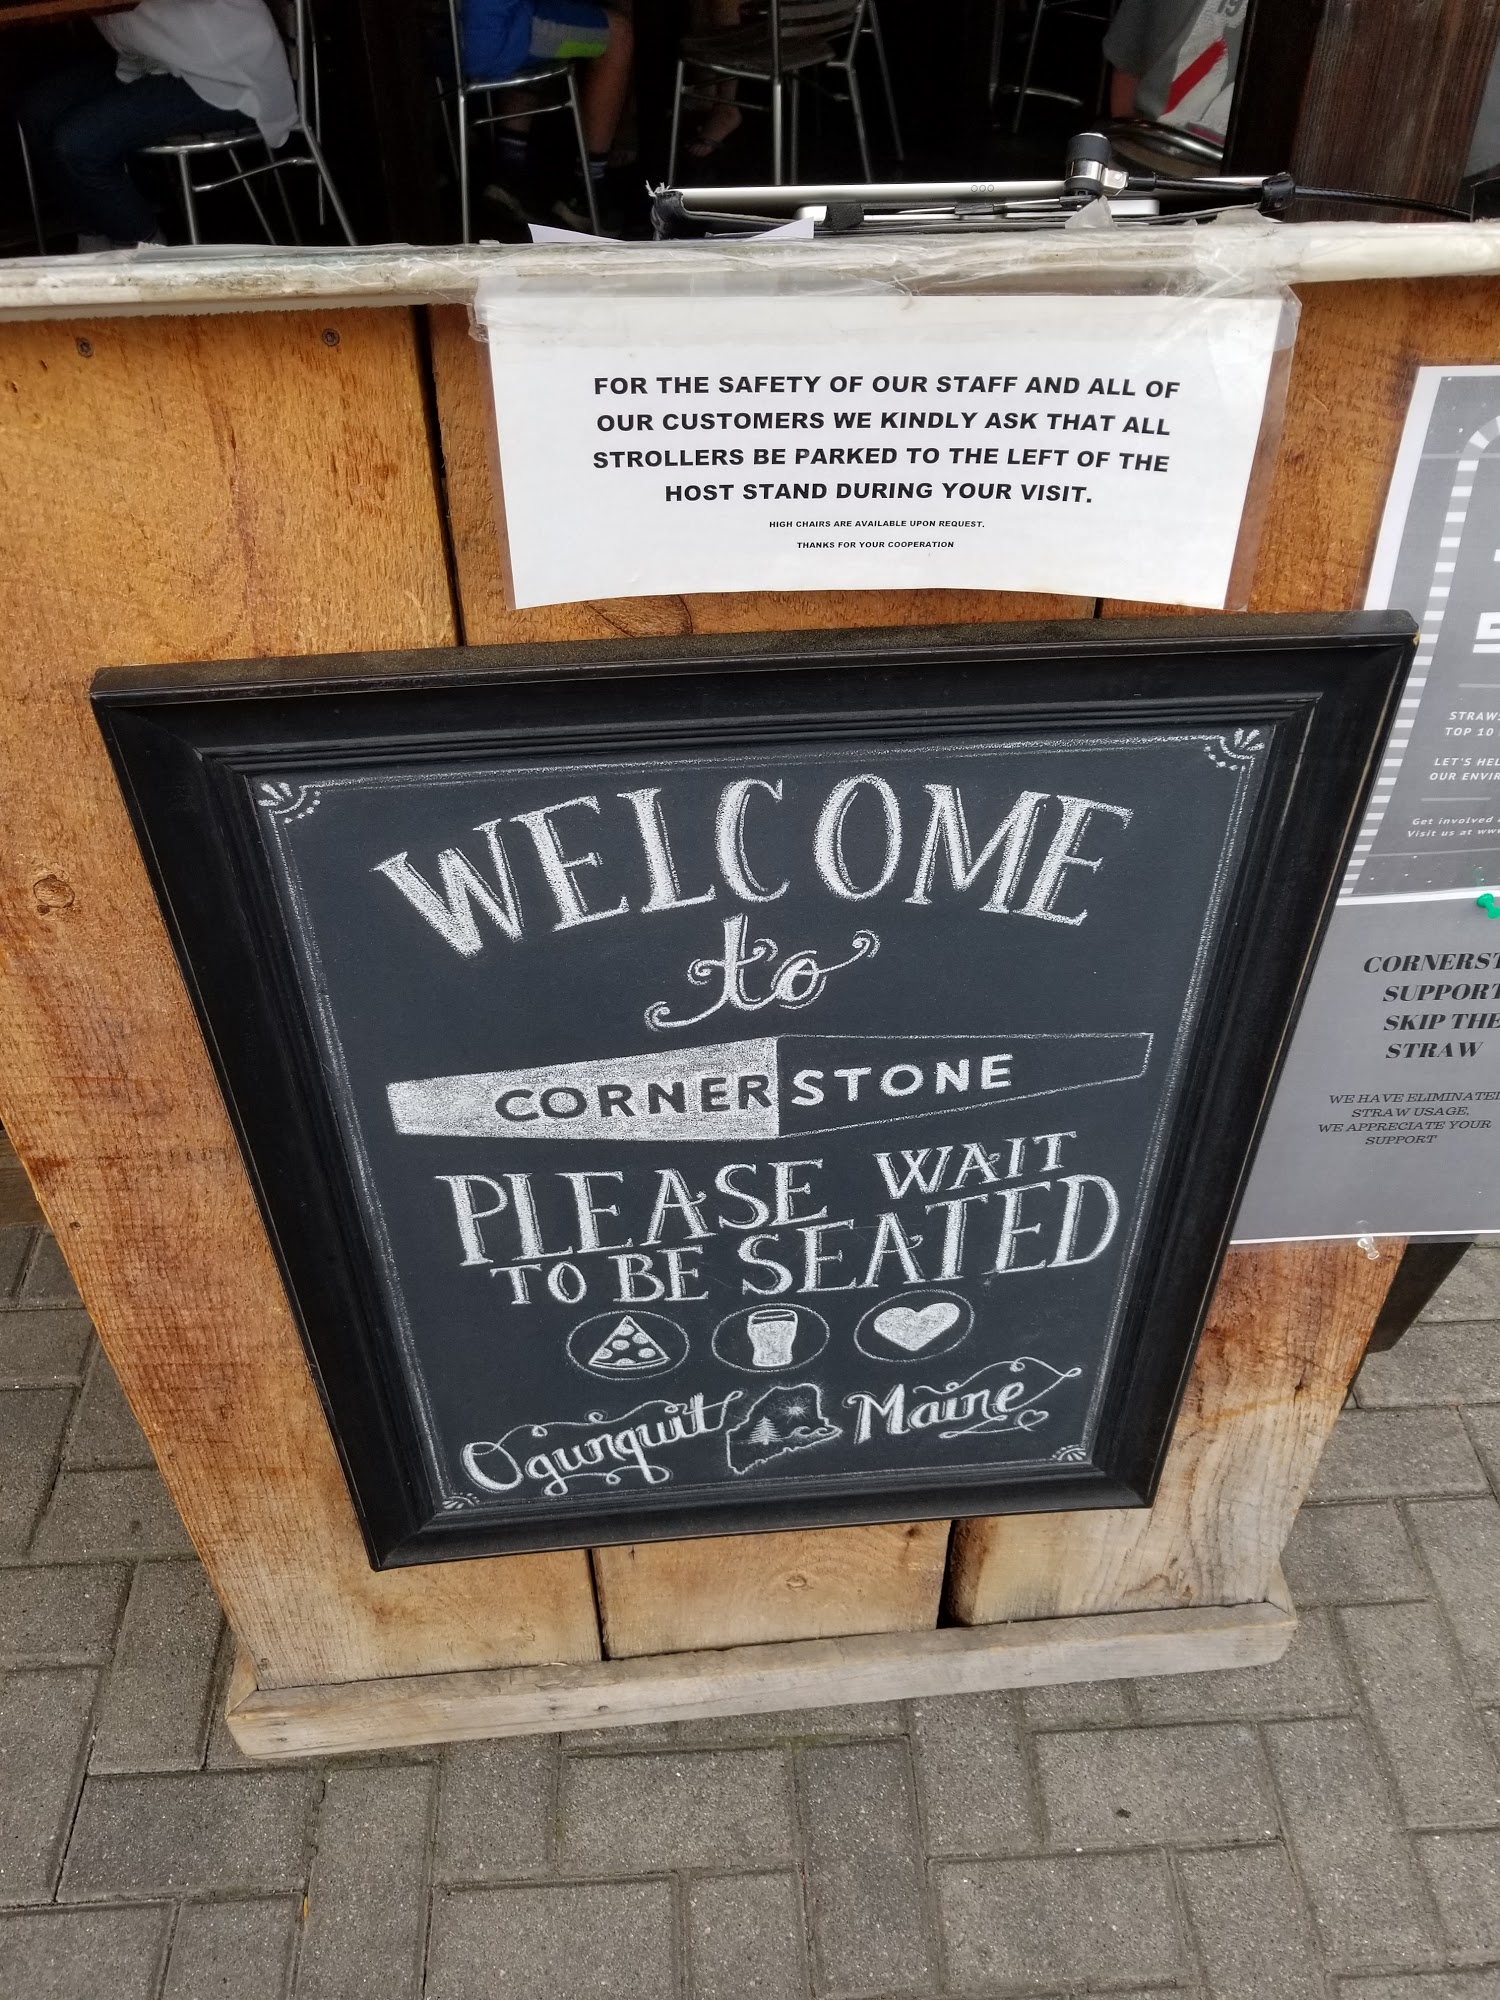 FOR THE SAFETY OF OUR STAFF AND ALL OF
OUR CUSTOMERS WE KINDLY ASK THAT ALL
STROLLERS BE PARKED TO THE LEFT OF THE
HOST STAND DURING YOUR VISIT.
HIGH CHAIRS ARE AVAILABLE UPON REQUEST.
THANKS FOR YOUR COOPERATION
WELCOME
to
CORNERSTONE
PLEASE WAIT
TO BE SEATED
Ogunquit Maine
TOP 10
LET'S
OUR
Get involved
Visit us at
SUPPORT
SKIP THE
STRAW
WE HAVE ELIMINATED
STRAW USAGE.
WE APPRECIATE YOUR
SUPPORT